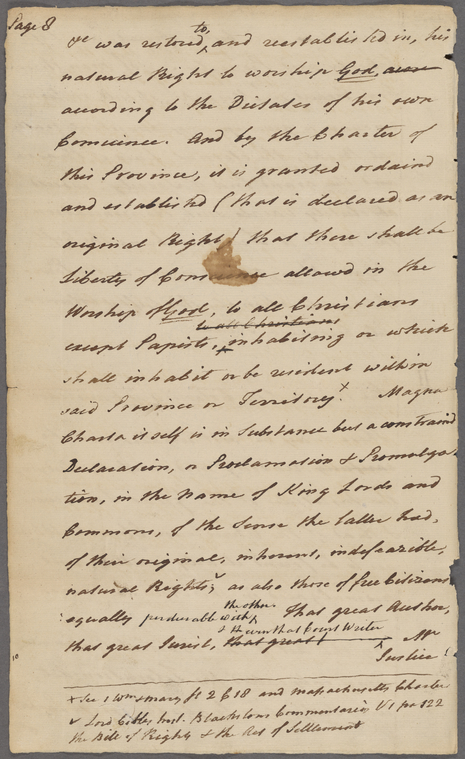 Page 8
&c was restored to, and reestablished in, his
natural Right to worship God,
according to the Dictates of his own
Conscience. And by the Charter of
this Province, it is granted ordaind
and established (that is declared as an
original Right) that there shall be
liberty of Conscience allowed in the
Worship of God, to all Christians
to all Christians
except Papists, inhabiting or which
shall inhabit or be resident within
said Province or Territory. x Magna
Charta itself is in Substance but a constraind
Declaration, or Proclamation & Promulga-
tion, in the name of King Lords and
Commons, of the Sense the latter had,
of their original, inherent, indefeazible,
natural Rights; v as also those of free Citizens
equally perdurable with the other. That great Author,
that great Jurist, that great & even that Court Writer Mr
Justice
x See 1 Wm & Mary St 2 C 18 and Massachusetts Charter
v Lord Cokes Inst. Blackstones Commentaries V 1 pa 122
the Bill of Rights & the Act of Settlement